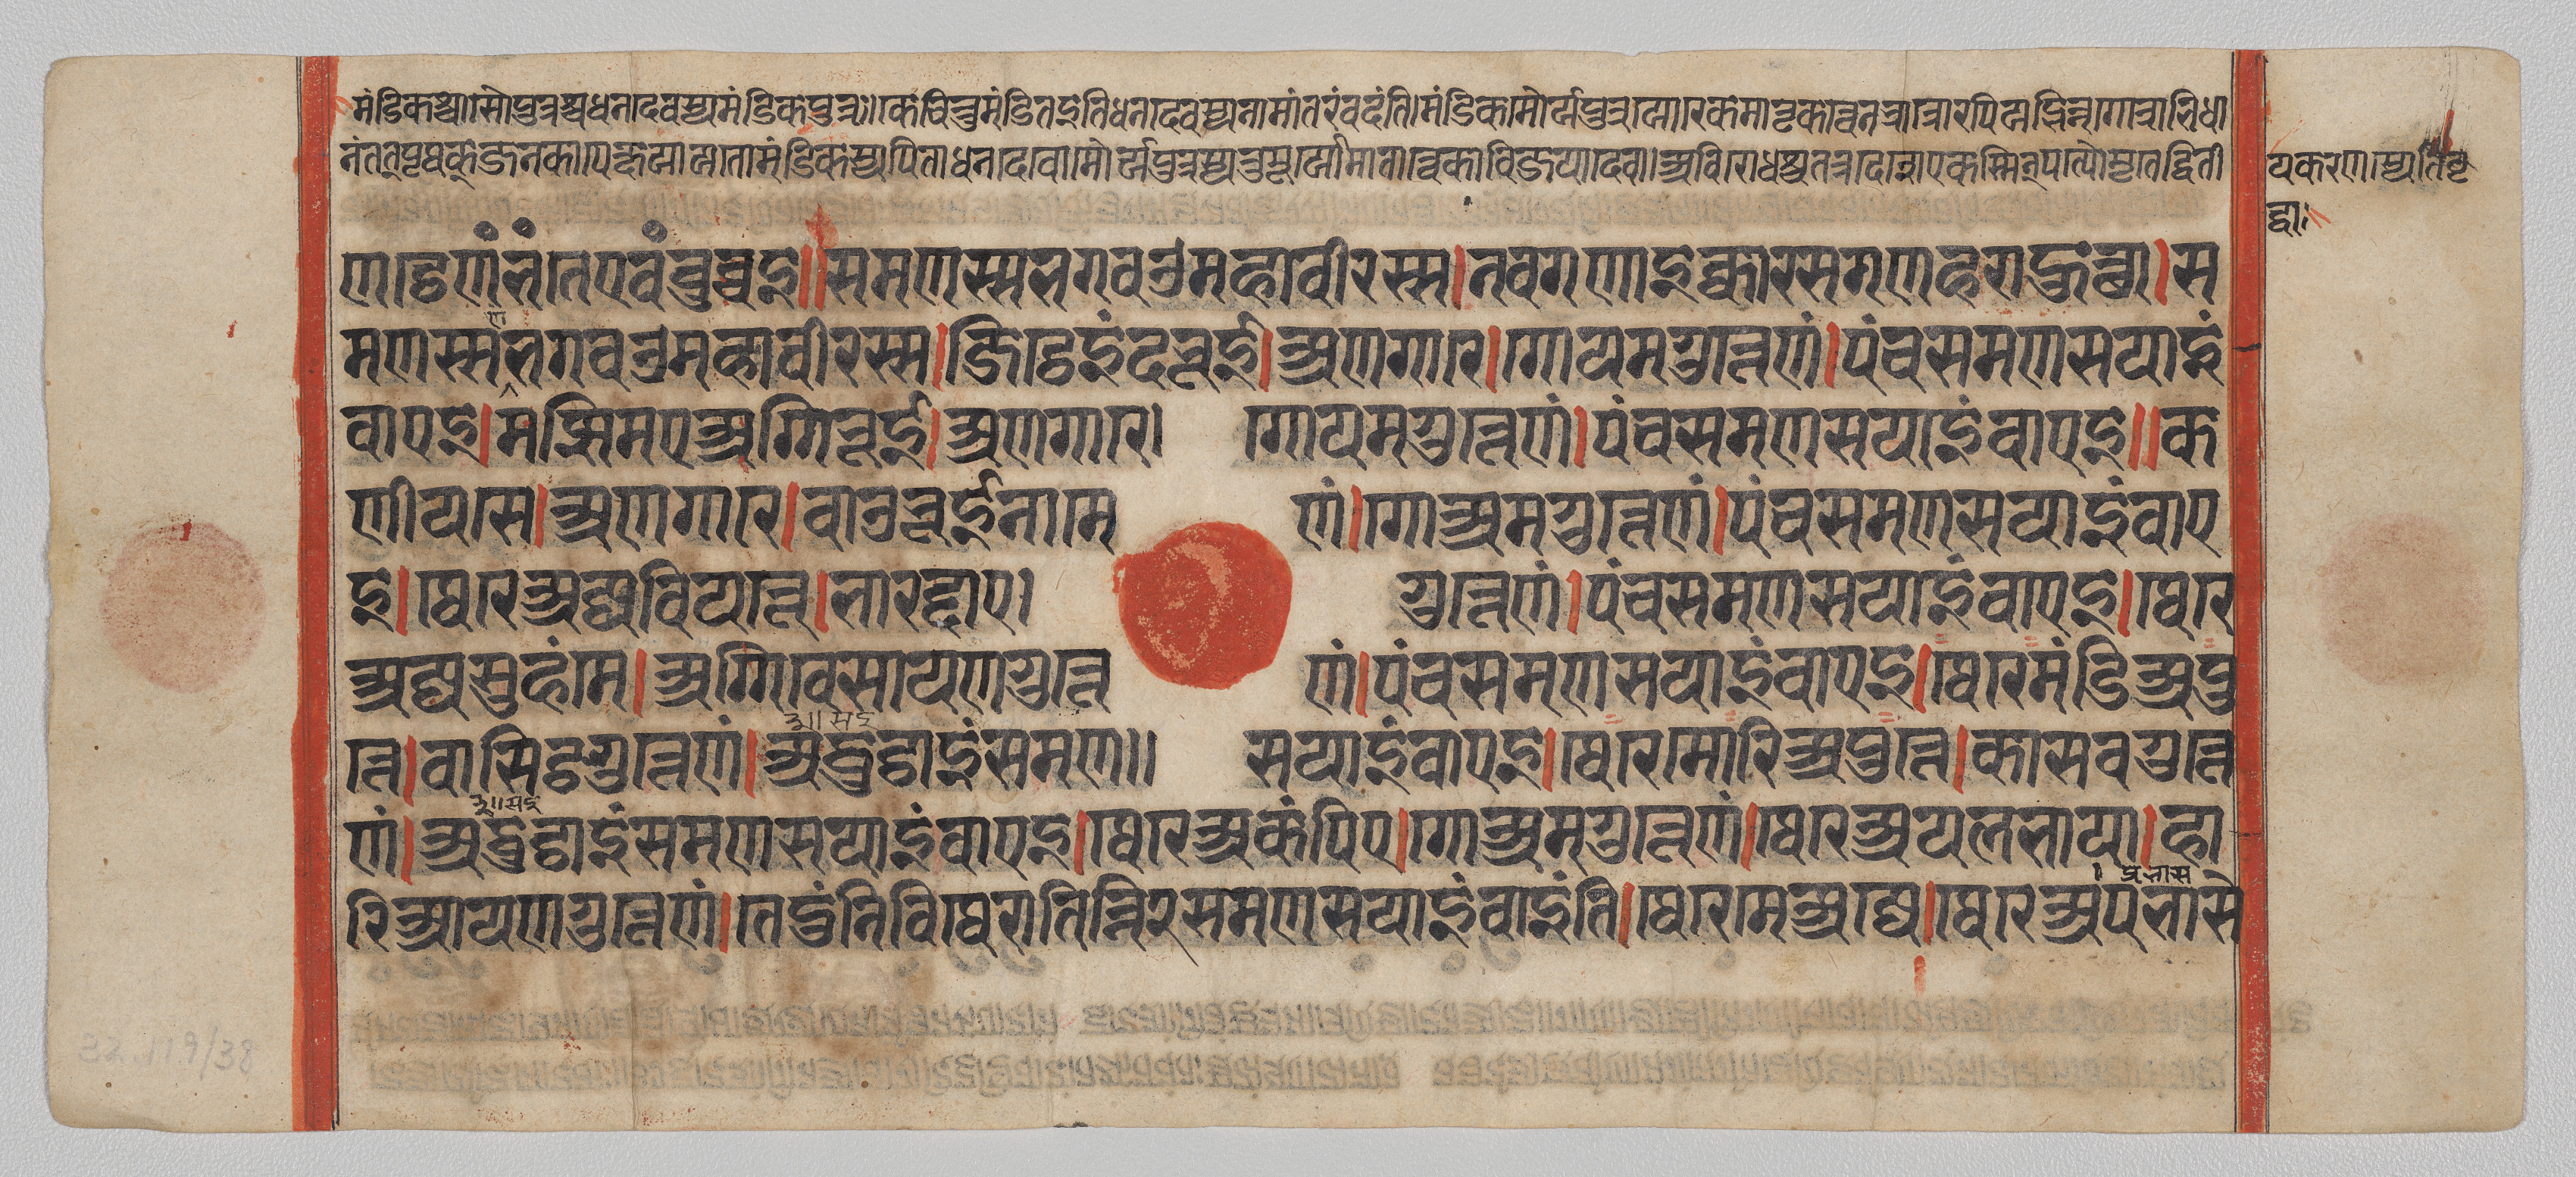 मंडिकश्चासौ पुत्रश्च धनदेवस्य मंडिकपुत्रः। केचित्तु मंडित इति धनदेवस्य नामांतरं वदंति। मंडिकमौर्यपुत्रयोरेकमातृकत्वेन भ्रात्रोरपि भिन्नगोत्राभिधा
नं तत् पृथक्जनकापेक्षया तत्र मंडिकस्य पिता धनदेवो मौर्यपुत्रस्य तु मौर्यो माता त्वेका विजयादेवी अविरोधश्च तत्र देशे एकस्मिन् पत्यौ मृते द्विती
यकरणस्येति वृ
द्धाः
णट्ठेणं भंते एवं वुच्चइ॥ समणस्स भगवउ महावीरस्स। नव गणा इक्कारस गणहरा हुत्था। स
मणस्स णं भगवउ महावीरस्स। जिट्ठे इंदभूई। अणगारे। गोयमगुत्तेणं। पंच समणसयाइं
वाएइ। मज्झिमए अग्गिभूई। अणगारे। गोयमगुत्तेणं। पंच समणसयाइं वाएइ॥ क
णीयसे। अणगारे। वाउभूई नामेणं। गोअमगुत्तेणं। पंच समणसयाइं वाए
इ। थेरे अज्जवियत्ते। भारद्दाए गुत्तेणं। पंच समणसयाइं वाएइ। थेरे
अज्जसुहंमे। अग्गिवेसायणगुत्तेणं। पंच समणसयाइं वाएइ। थेरे मंडिअपु
त्ते। वासिट्ठगुत्तेणं। अद्धुट्ठाइं समण॥ सयाइं वाएइ। थेरे मोरिअपुत्ते। कासवगुत्ते
णं। अद्धुट्ठाइं समणसयाइं वाएइ। थेरे अकंपिए। गोअमगुत्तेणं। थेरे अयलभाया। हा
रिआयणगुत्तेणं। ते दुंनि वि थेरा तिन्नि २ समणसयाइं वाइंति। थेरे मेअज्जे। थेरे अपभासे
32.119/38